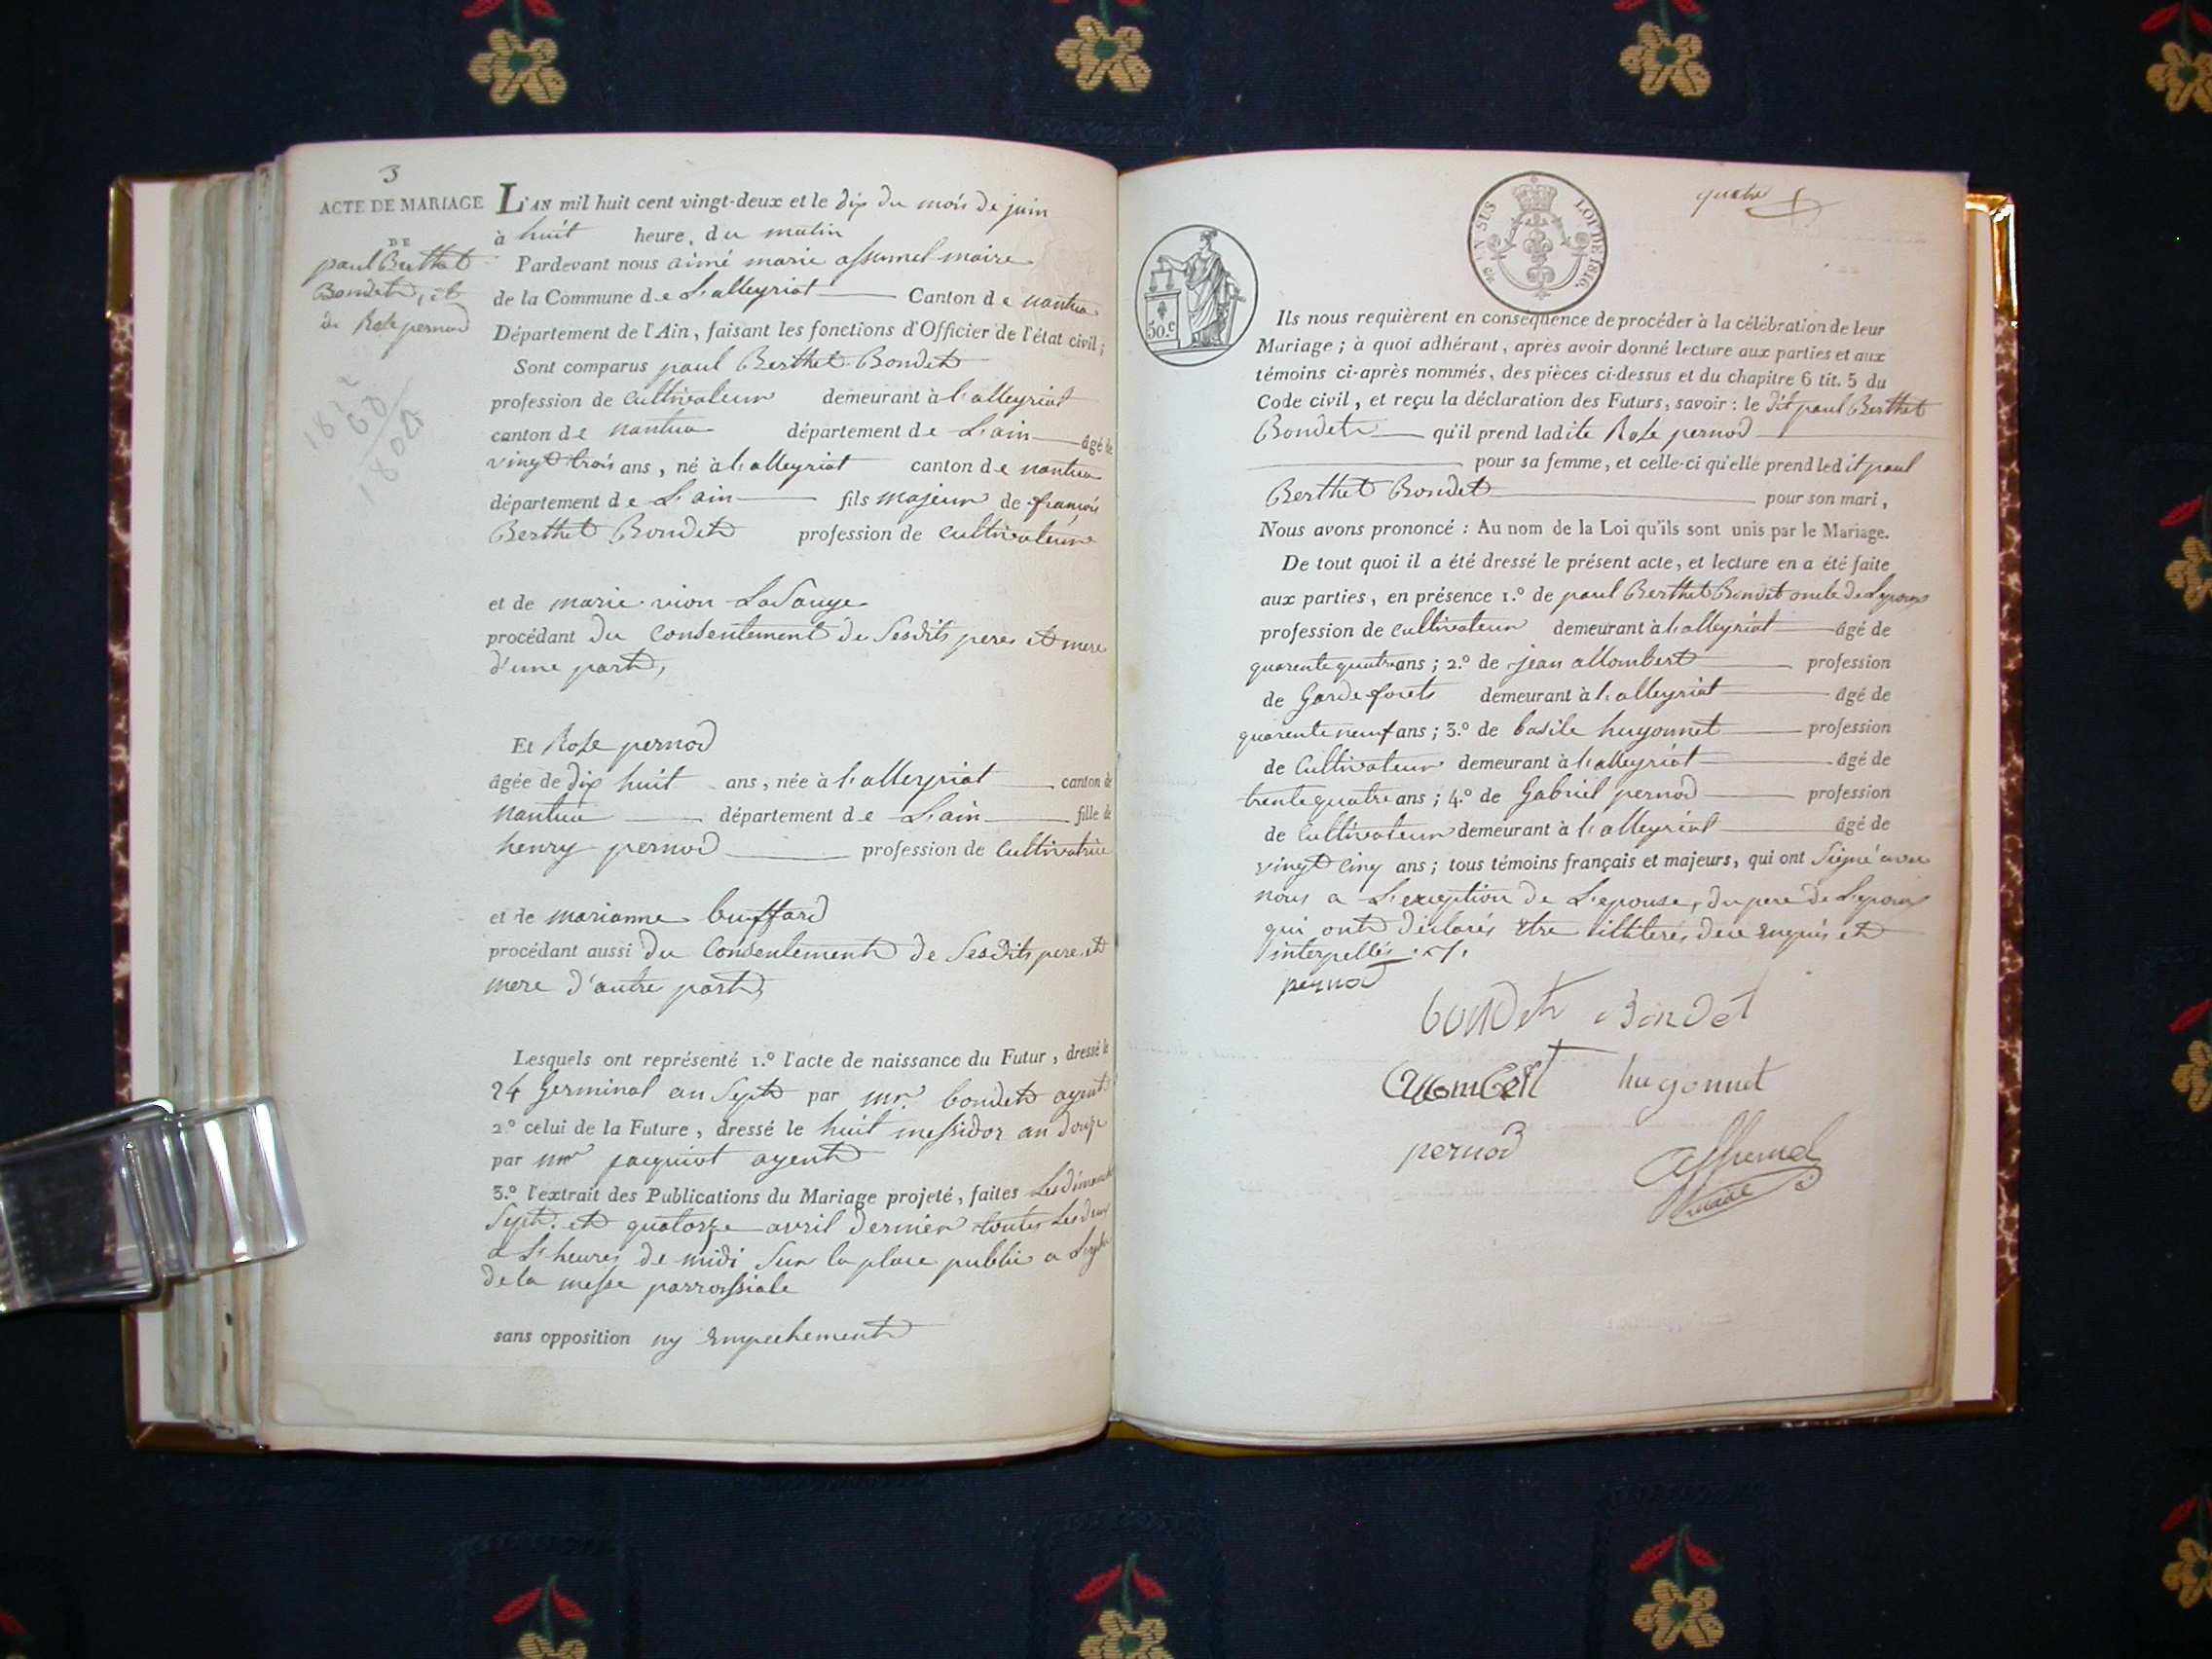 3
ACTE DE MARIAGE
DE
paul Berthet
Bondet, et
de Rose pernod
L'AN mil huit cent vingt-deux et le dix du mois de juin
à huit heure, du matin
Pardevant nous aimé marie assumel maire
de la Commune de L'alleyriat Canton de nantua
Département de l'Ain, faisant les fonctions d'Officier de l'état civil;
Sont comparus paul Berthet Bondet
profession de Cultivateur demeurant à l'alleyriat
canton de nantua département de L'ain âgé de
vingt trois ans, né à l'alleyriat canton de nantua
département de L'ain fils majeur de françois
Berthet Bondet profession de Cultivateur
et de marie vion
procédant du Consentement de Sesdits peres et mere
d'une part,
Et Rose pernod
âgée de dix huit ans, née à l'alleyriat canton de
nantua département de L'ain fille de
henry pernod profession de Cultivatrice
et de marianne buffard
procédant aussi du Consentement de Sesdits pere et
mere d'autre part,
Lesquels ont représenté 1.º l'acte de naissance du Futur, dressé le
24 Germinal an Sept par mr. bondet agent
2.º celui de la Future, dressé le huit messidor an douze
par mr jacquiot agent
3.º l'extrait des Publications du Mariage projeté, faites Les dimanches
Sept. et quatorze avril dernier toutes Les deux
a heures de midi Sur la place public a
de la messe parroissiale
sans opposition ny Empechement
quatre
50.c
EN SUS
LOI DE 1816.
Ils nous requièrent en conséquence de procéder à la célébration de leur
Mariage; à quoi adhérant, après avoir donné lecture aux parties et aux
témoins ci-après nommés, des pièces ci-dessus et du chapitre 6 tit. 5 du
Code civil, et reçu la déclaration des Futurs, savoir: le dit paul Berthet
Bondet qu'il prend ladite Rose pernod
pour sa femme, et celle-ci qu'elle prend ledit paul
Berthet Bondet pour son mari,
Nous avons prononcé: Au nom de la Loi qu'ils sont unis par le Mariage.
De tout quoi il a été dressé le présent acte, et lecture en a été faite
aux parties, en présence 1.º de paul Berthet Bondet oncle de L'epoux
profession de cultivateur demeurant à l'alleyriat âgé de
quarente quatre ans; 2.º de jean allombert profession
de Garde forets demeurant à l'alleyriat âgé de
quarente neuf ans; 3.º de basile hugonnet profession
de Cultivateur demeurant à l'alleyriat âgé de
trente quatre ans; 4.º de Gabriel pernod profession
de Cultivateur demeurant à l'alleyriat âgé de
vingt cinq ans; tous témoins français et majeurs, qui ont Signé avec
nous a L'exception de L'epouse, du pere de L'epoux
qui ont déclarés être illiterés de ce enquis et
interpellés
pernod
bondet Bondet
allombert hugonnet
pernod
assumel
maire